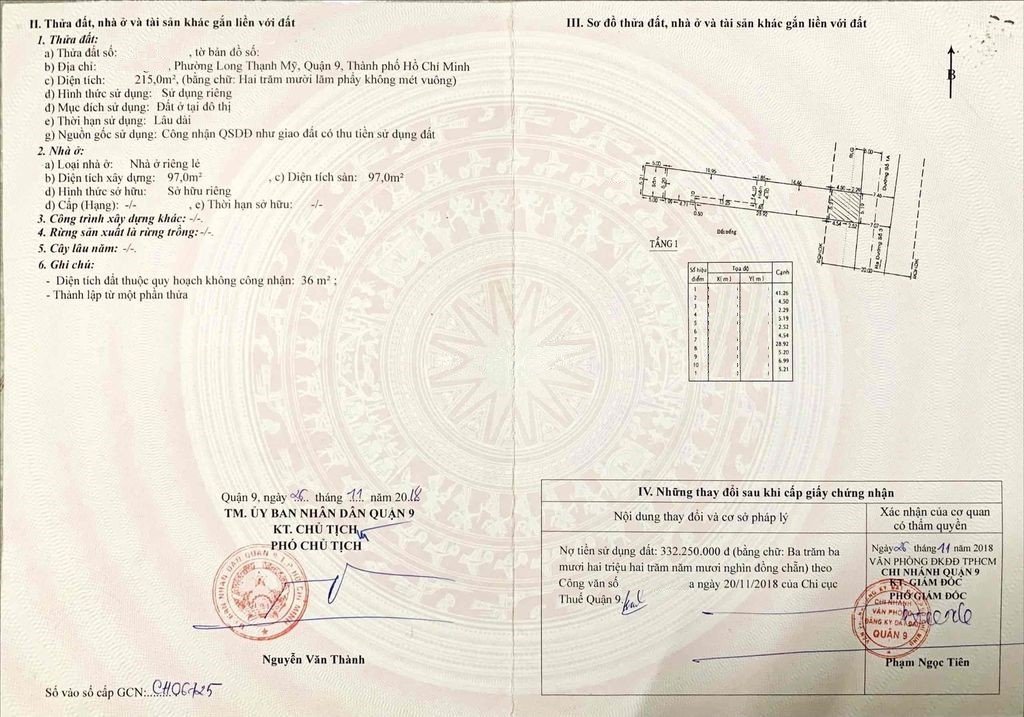 II. Thửa đất, nhà ở và tài sản khác gắn liền với đất
1. Thửa đất:
a) Thửa đất số: , tờ bản đồ số:
b) Địa chỉ: , Phường Long Thạnh Mỹ, Quận 9, Thành phố Hồ Chí Minh
c) Diện tích: 215,0m², (bằng chữ: Hai trăm mười lăm phẩy không mét vuông)
d) Hình thức sử dụng: Sử dụng riêng
đ) Mục đích sử dụng: Đất ở tại đô thị
e) Thời hạn sử dụng: Lâu dài
g) Nguồn gốc sử dụng: Công nhận QSDĐ như giao đất có thu tiền sử dụng đất
2. Nhà ở:
a) Loại nhà ở: Nhà ở riêng lẻ
b) Diện tích xây dựng: 97,0m² , c) Diện tích sàn: 97,0m²
d) Hình thức sở hữu: Sở hữu riêng
đ) Cấp (Hạng): -/- , e) Thời hạn sở hữu: -/-
3. Công trình xây dựng khác: -/-.
4. Rừng sản xuất là rừng trồng:-/-.
5. Cây lâu năm: -/-.
6. Ghi chú:
- Diện tích đất thuộc quy hoạch không công nhận: 36 m² ;
- Thành lập từ một phần thửa
Quận 9, ngày 26 tháng 11 năm 2018
TM. ỦY BAN NHÂN DÂN QUẬN 9
KT. CHỦ TỊCH
PHÓ CHỦ TỊCH
Nguyễn Văn Thành
Số vào sổ cấp GCN: CH06725
III. Sơ đồ thửa đất, nhà ở và tài sản khác gắn liền với đất
B
5.00
19.95
1.85
14.66
4.50
2.29
7.45
6.00
RLG
Đường Số 1A
5.21
Sân
5.00
4.71
0.50
28.92
4.54
2.52
7.07
20.00
Hẻm Đường Số 3
Đất trống
TẦNG 1
Số hiệu điểm Tọa độ Cạnh
X( m ) Y( m )
1
2 41.26
3 4.50
4 2.29
5 5.19
6 2.52
7 4.54
8 28.92
9 5.20
10 6.99
1 5.21
IV. Những thay đổi sau khi cấp giấy chứng nhận
Nội dung thay đổi và cơ sở pháp lý
Xác nhận của cơ quan
có thẩm quyền
Nợ tiền sử dụng đất: 332.250.000 đ (bằng chữ: Ba trăm ba
mươi hai triệu hai trăm năm mươi nghìn đồng chẵn) theo
Công văn số a ngày 20/11/2018 của Chi cục
Thuế Quận 9.
Ngày 26 tháng 11 năm 2018
VĂN PHÒNG ĐKĐĐ TPHCM
CHI NHÁNH QUẬN 9
KT. GIÁM ĐỐC
PHÓ GIÁM ĐỐC
CHI NHÁNH
VĂN PHÒNG
ĐĂNG KÝ ĐẤT ĐAI
QUẬN 9
Phạm Ngọc Tiên